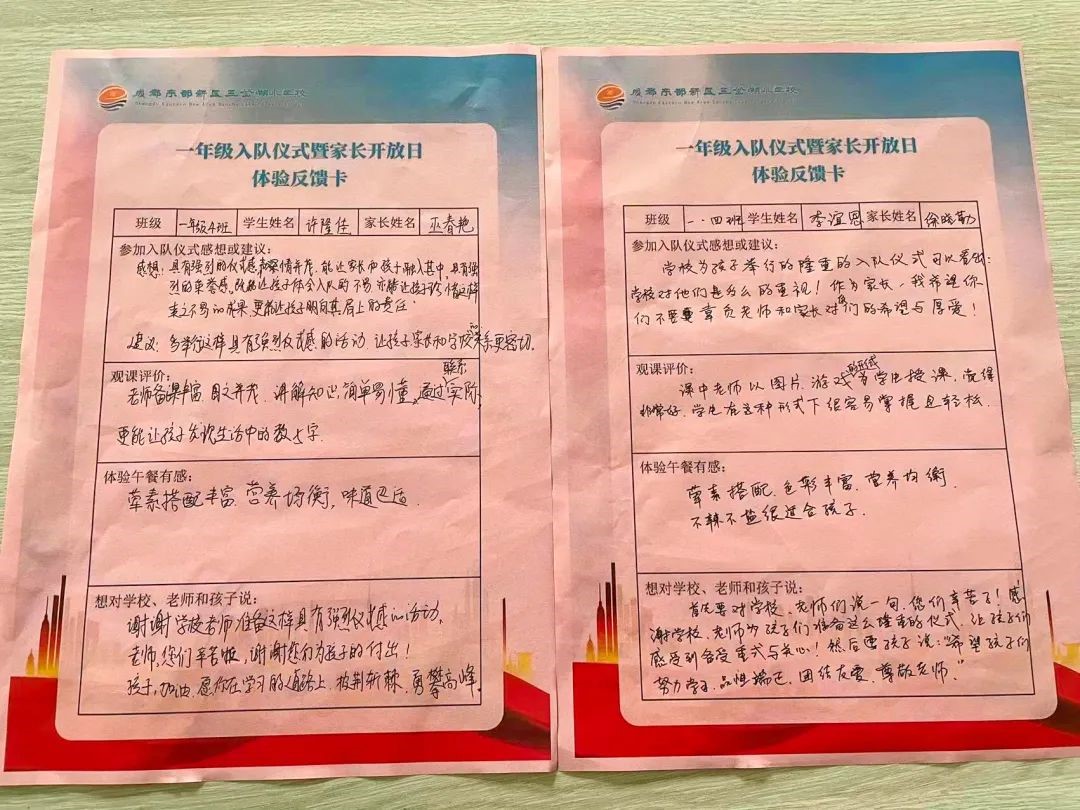 成都东部新区三岔湖小学校
一年级入队仪式暨家长开放日
体验反馈卡
班级 一年级4班 学生姓名 许隆任 家长姓名 巫春艳
参加入队仪式感想或建议:
感想: 具有强烈的仪式感,能让家长和孩子融入其中,具有强
烈的荣誉感,既能让孩子体会入队的不易
来之不易的成果,更能让孩子明白其肩上的责任
建议: 多举行这样具有强烈仪式感的活动 让孩子家长和学校的关系更密切.
观课评价:
老师备课丰富 图文并茂. 讲解知识,简单易懂,通过联系实际,
更能让孩子发现生活中的数字.
体验午餐有感:
荤素搭配丰富.营养均衡,味道巴适.
想对学校、老师和孩子说:
谢谢学校老师准备这样具有强烈仪式感的活动.
老师,您们辛苦啦,谢谢您们为孩子的付出!
孩子,加油.愿你在学习的道路上,披荆斩棘,勇攀高峰.
成都东部新区三岔湖小学校
一年级入队仪式暨家长开放日
体验反馈卡
班级 一.四班 学生姓名 李谊恩 家长姓名 徐晓勤
参加入队仪式感想或建议:
学校为孩子举行的隆重的入队仪式可以看出:
学校对他们是多么的重视!作为家长,我希望你
们不要辜负老师和家长对你们的希望与厚爱!
观课评价:
课中老师以图片.游戏的形式为学生授课,觉得
非常好.学生在这种形式下很容易掌握且轻松.
体验午餐有感:
荤素搭配.色彩丰富.营养均衡.
不辣不盐很适合孩子.
想对学校、老师和孩子说:
首先要对学校、老师们说一句,您们辛苦了!感
谢学校、老师为孩子们准备这么隆重的仪式,让孩子们
感受到备受重式与关心!然后要孩子说:“希望孩子们
努力学习,品性端正,团结友爱,尊敬老师.”